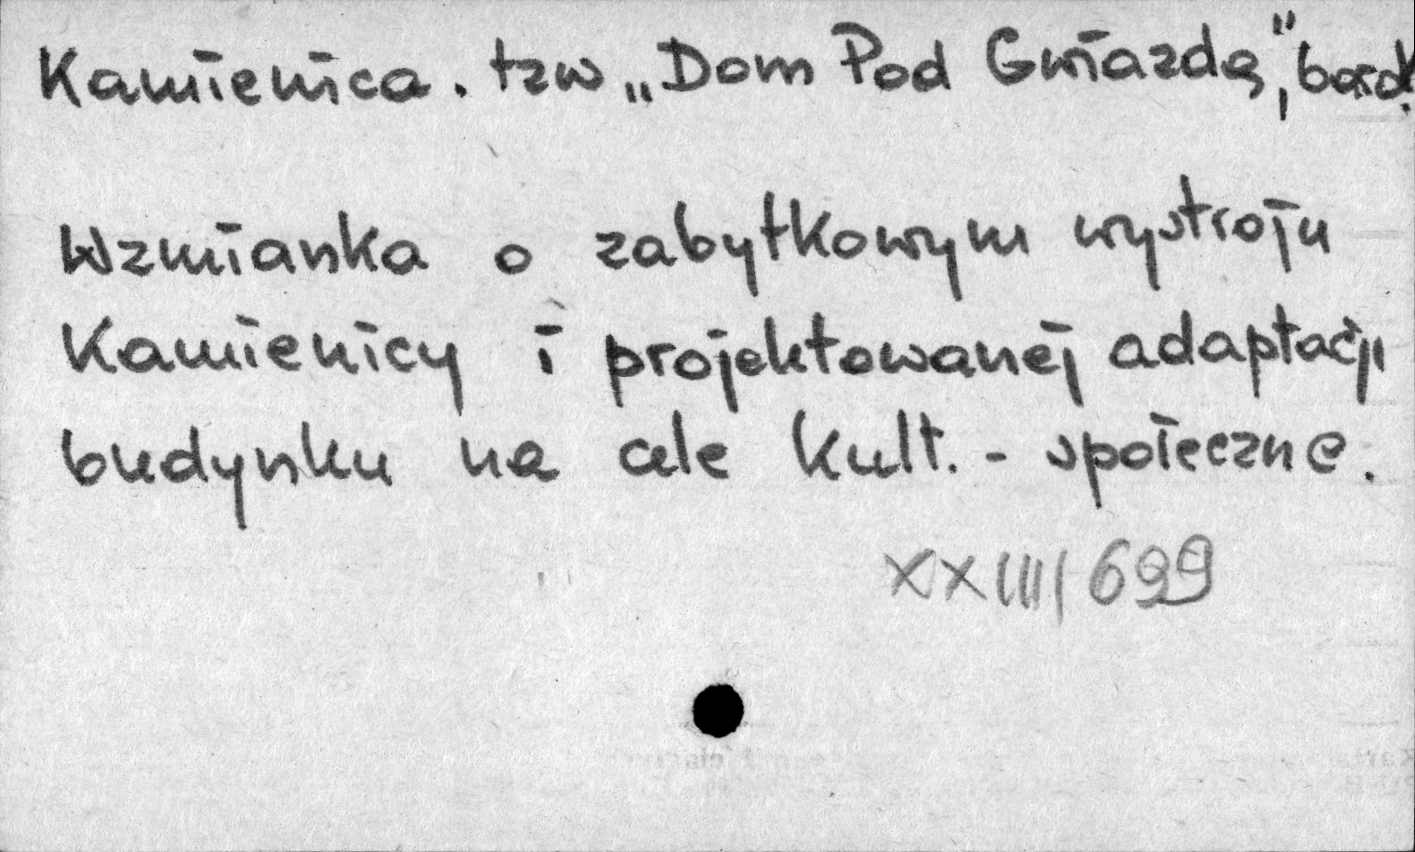 Kamienica. tzw „Dom Pod Gwiazdą", barok.
Wzmianka o zabytkowym wystroju
Kamienicy i projektowanej adaptacji
budynku na cele kult. - społeczne.
XXIII/699